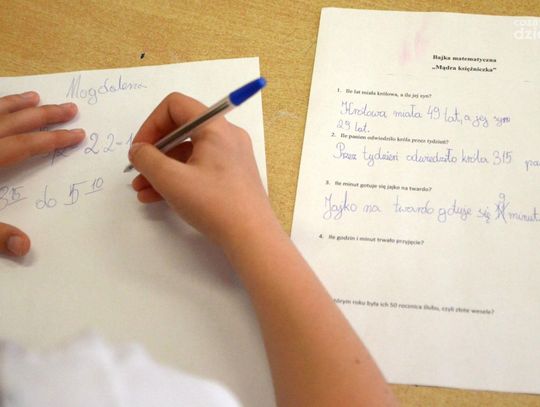 Magdalena
22-
315 do 5 10
Bajka matematyczna
„Mądra księżniczka"
1. Ile lat miała królowa, a ile jej syn?
Królowa miała 49 lat, a jej syn
29 lat.
2. Ile panien odwiedziło króla przez tydzień?
Przez tydzień odwiedziło króla 315
3. Ile minut gotuje się jajko na twardo?
9
Jajko na twardo gotuje się minut
4. Ile godzin i minut trwało przyjęcie?
którym roku była ich 50 rocznica ślubu, czyli złote wesele?